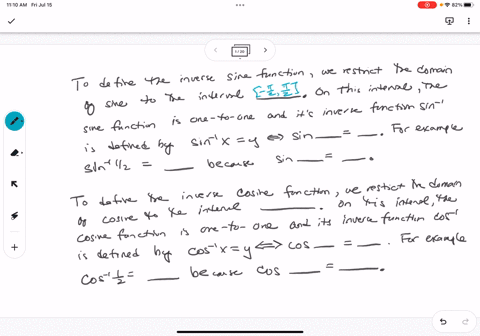 11:10 AM Fri Jul 15
82%
1/20
To define the inverse sine function, we restrict the domain
of sine to the interval [-π/2, π/2]. On this interval, the
sine function is one-to-one and it's inverse function sin⁻¹
is defined by sin⁻¹x = y ⇔ sin ___ = ___. For example
sin⁻¹ 1/2 = ___ because sin ___ = ___.
To define the inverse cosine function, we restrict the domain
of cosine to the interval ___. On this interval, the
cosine function is one-to-one and its inverse function cos⁻¹
is defined by cos⁻¹x = y ⇔ cos ___ = ___. For example
cos⁻¹ 1/2 = ___ because cos ___ = ___.